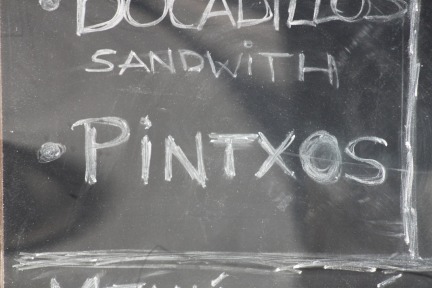 • BOCADILLOS
SANDWITH
• PiNTXOS